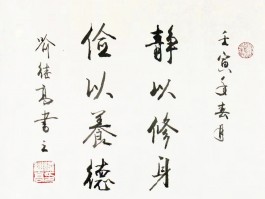 壬寅年春月
静以修身
俭以養德
喻继高書之